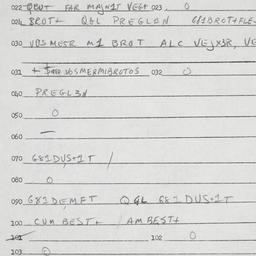 022 QBUT FAR MAJN1T VEGT 023 O
024 BROT+ QGL PREGLAN 681BROT+FLE
030 VBS MESR M1 BROT ALC VEJXSR, VE
031 + VBSMERMIBROTOS 032 O
040 PREGL3N
050 O
060 —
070 G81DUS+1T /
080 O
090 G81DEMFT QGL G81 DUS+1T
100 CUM BEST+ / AM BEST+
101 102 O
103 O